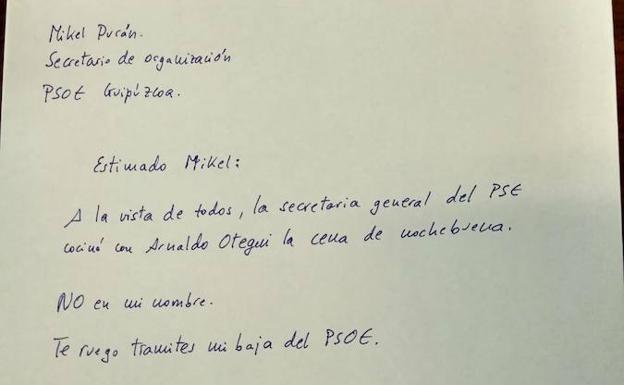 Mikel Durán.
Secretario de organización
PSOE Guipúzcoa.
Estimado Mikel:
A la vista de todos, la secretaria general del PSE
cocinó con Arnaldo Otegui la cena de nochebuena.
NO en mi nombre.
Te ruego tramites mi baja del PSOE.